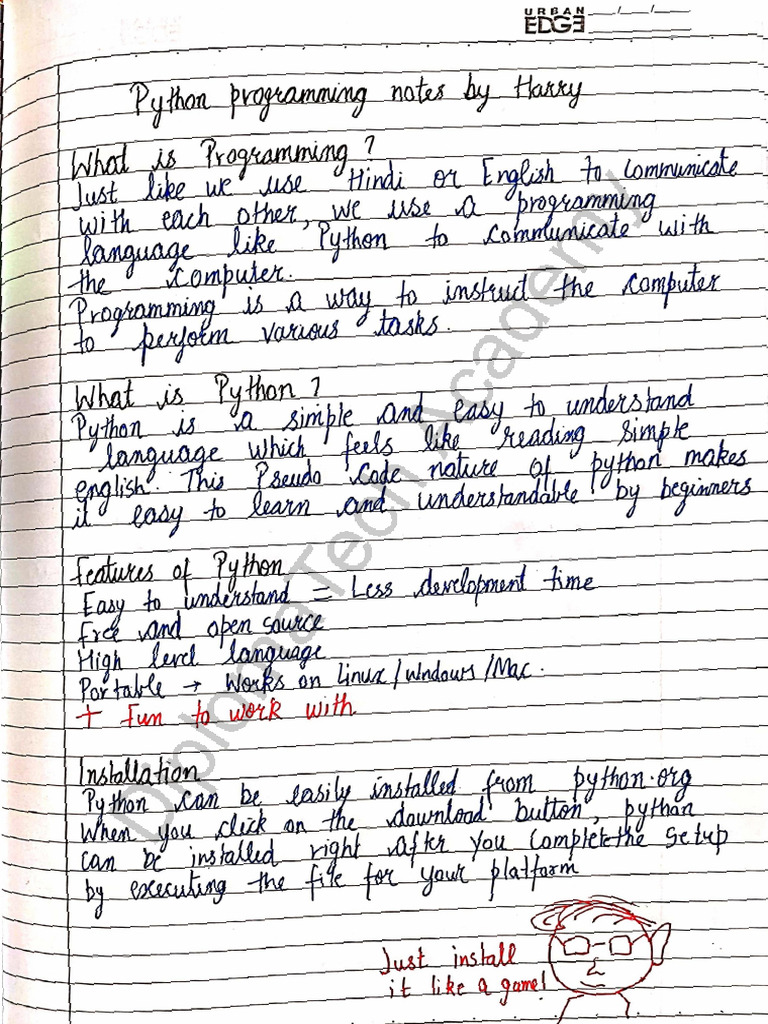 URBAN
EDGE __/__/__
Python programming notes by Harry
What is Programming?
Just like we use Hindi or English to communicate
with each other, we use a programming
language like Python to communicate with
the computer.
Programming is a way to instruct the computer
to perform various tasks.
What is Python?
Python is a simple and easy to understand
language which feels like reading simple
english. This Pseudo code nature of python makes
it easy to learn and understandable by beginners
Features of Python
Easy to understand = Less development time
Free and open source
High level language
Portable → Works on Linux/windows/Mac.
+ Fun to work with
Installation
Python can be easily installed from python.org
When you click on the download button, python
can be installed right after you complete the setup
by executing the file for your platform
Just install
it like a game!
DiplomaTech Academy